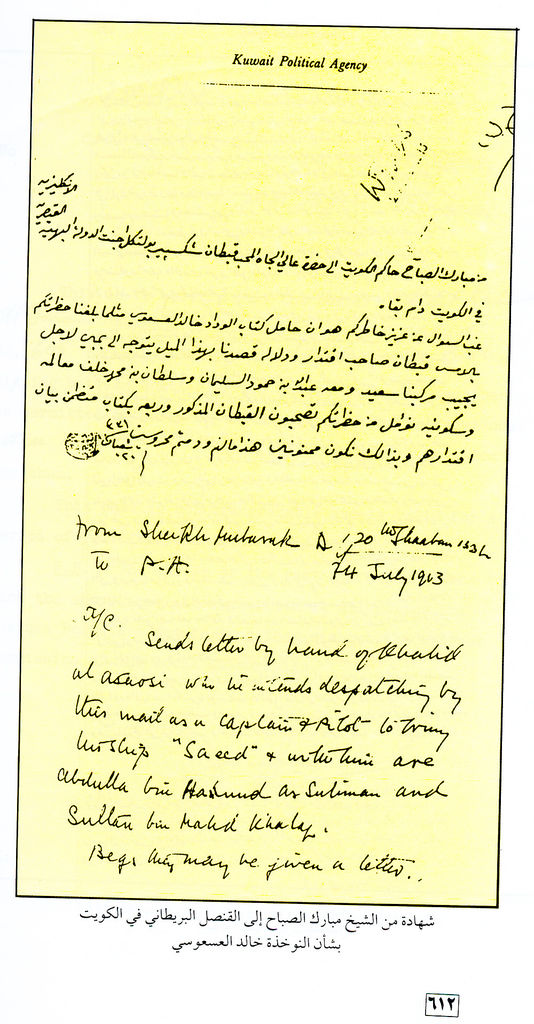 Kuwait Political Agency
من مبارك الصباح حاكم الكويت الى حضرة عالي الجاه المحب قبطان شكسبير بولتكل اجنت الدولة البهية
القيصرية
الانكليزية
في الكويت دام بقاه
غب السؤال عن عزيز خاطركم هو ان حامل كتاب الوداد خالد العسعوسي مثلما بلغنا حظرتكم
بالامس قبطان صاحب اقتدار ودلاله قصدنا بهذا الميل يتوجه الى بمبي لاجل
يجيب مركبنا سعيد ومعه عبدالله بن حمود السليمان وسلطان بن محمد خلف معالمه
وسكونيه نؤمل من حظرتكم تصحبون القبطان المذكور وربعه بكتاب متظمن بيان
اقتدارهم وبذالك نكون ممنونين هذا مالزم ودمتم محروسين
٢٠ شعبان ٣٣١
From Sheikh Mubarak D/ 20th Shaaban 1331
To P.A. 24 July 1913
A/C.
Sends letter by hand of Khalid
al asaosi who he intends despatching by
this mail as a captain & Pilot to bring
his ship "Saeed" & with him are
Abdulla bin Hamud as Suliman and
Sultan bin Mahd Khalaf.
Begs they may be given a letter..
شهادة من الشيخ مبارك الصباح إلى القنصل البريطاني في الكويت
بشأن النوخذة خالد العسعوسي
٦١٢